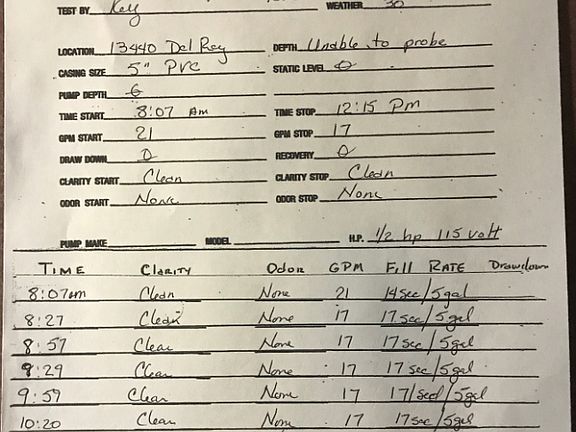 TEST BY Kely WEATHER 30
LOCATION 13440 Del Rey DEPTH Unable to probe
CASING SIZE 5" PVC STATIC LEVEL 0
PUMP DEPTH
TIME START 8:07 Am TIME STOP 12:15 Pm
GPM START 21 GPM STOP 17
DRAW DOWN 0 RECOVERY 0
CLARITY START Clean CLARITY STOP Clean
ODOR START None ODOR STOP None
PUMP MAKE MODEL H.P. 1/2 hp 115 volt
TIME Clarity Odor GPM Fill RATE Drawdown
8:07am Clean None 21 14sec/5gal
8:27 Clean None 17 17sec/5gal
8:57 Clear None 17 17sec/5gal
9:29 Clear None 17 17sec/5gal
9:59 Clear None 17 17/sec/5gal
10:20 Clear None 17 17sec/5gal